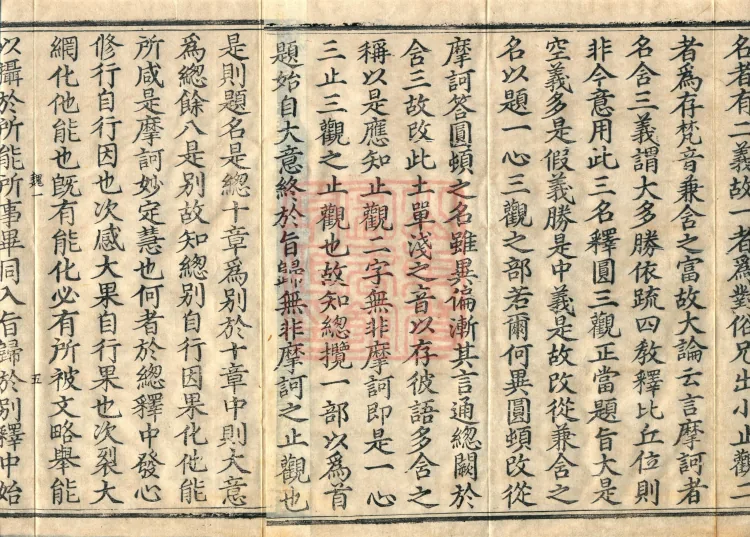 名者有二義故一者爲對俗兄出小止觀二
者爲存梵音兼含之富故大論云言摩訶者
名含三義謂大多勝依疏四教釋比丘位則
非今意用此三名釋圓三觀正當題旨大是
空義多是假義勝是中義是故改從兼含之
名以題一心三觀之部若爾何異圓頓改從
摩訶答圓頓之名雖異偏漸其言通總闕於
含三故改此土單淺之音以存彼語多含之
稱以是應知止觀二字無非摩訶即是一心
三止三觀之止觀也故知總攬一部以爲首
題始自大意終於旨歸無非摩訶之止觀也
是則題名是總十章爲別於十章中則大意
爲總餘八是別故知總別自行因果化他能
所咸是摩訶妙定慧也何者於總釋中發心
修行自行因也次感大果自行果也次裂大
網化他能也既有能化必有所被文略舉能
魏一
五
以攝於所能所事畢同入旨歸於別釋中始